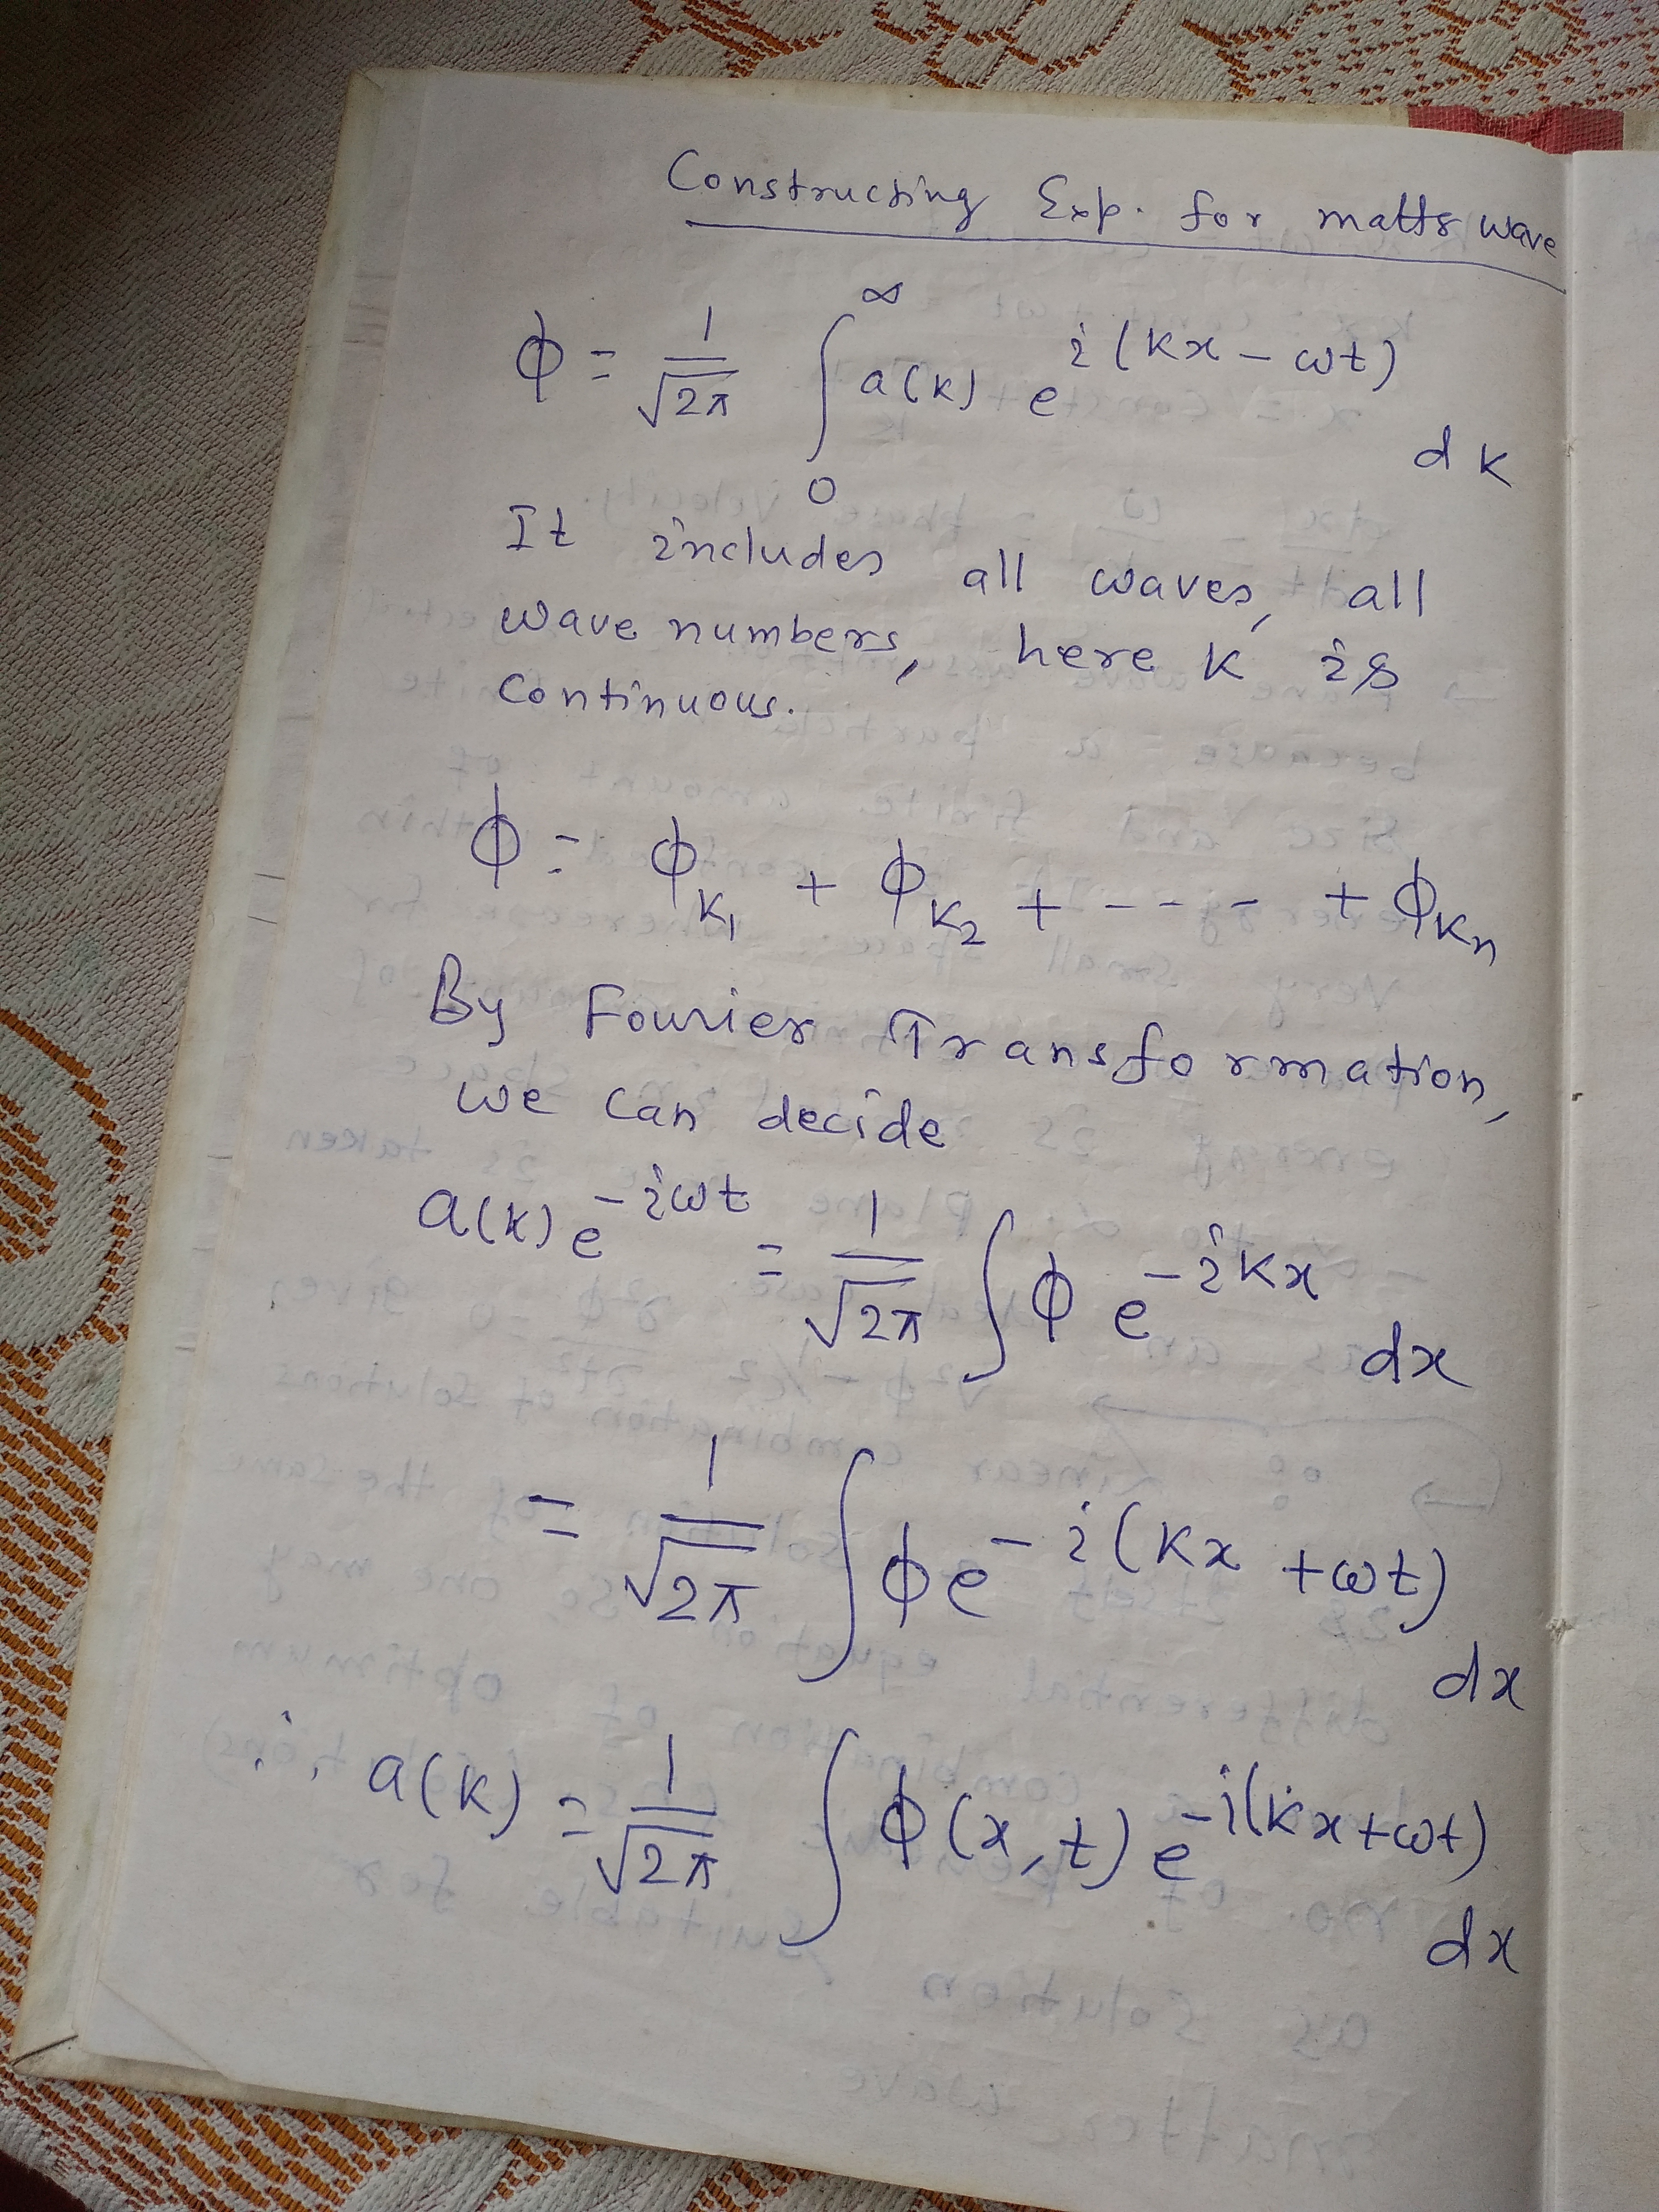 Constructing Exp. for matts wave
ϕ = 1/√2π ∫₀^∞ a(k) e^i(kx - ωt) dk
It includes all waves, all
wave numbers, here k is
continuous.
ϕ = ϕk₁ + ϕk₂ + - - - - + ϕkn
By Fourier Transformation,
we can decide
a(k) e^-iωt = 1/√2π ∫ ϕ e^-ikx dx
= 1/√2π ∫ ϕ e^-i(kx + ωt) dx
∴ a(k) = 1/√2π ∫ ϕ(x, t) e^-i(kx + ωt) dx